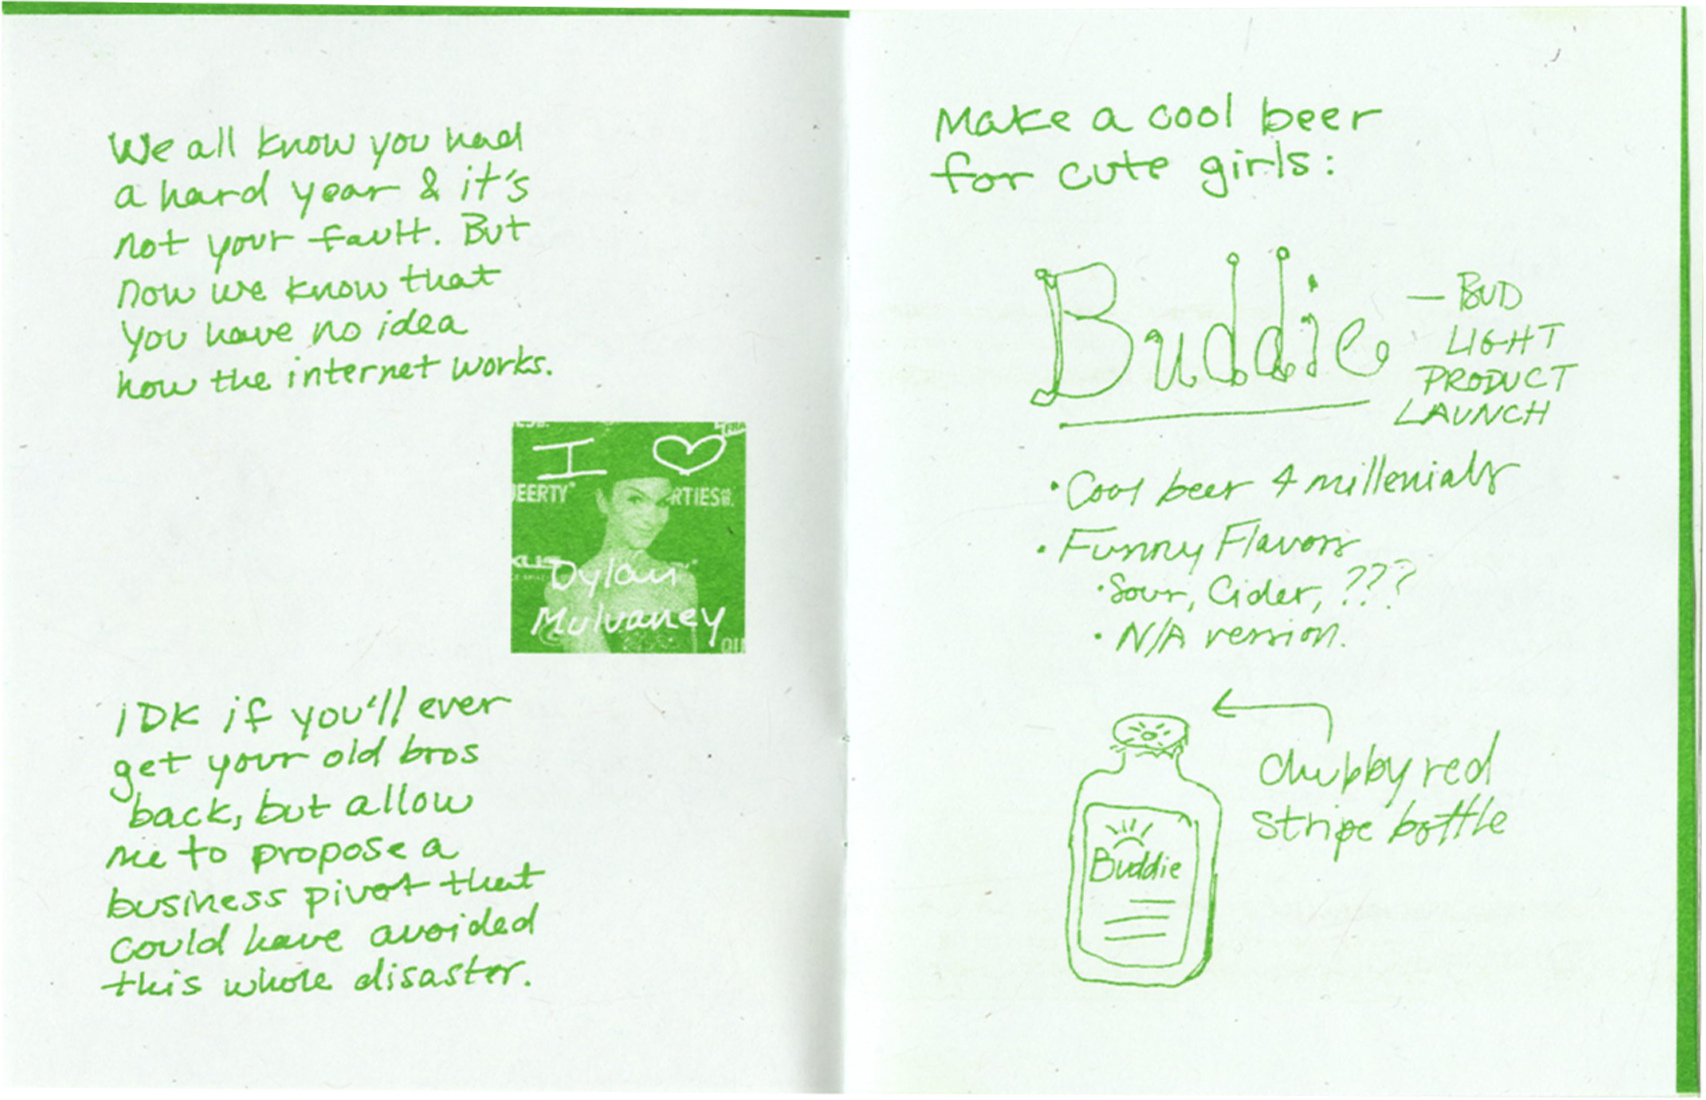 We all know you had
a hard year & it's
not your fault. But
now we know that
you have no idea
how the internet works.
I ♡
EERTY
RTIES
Dylan
Mulvaney
IDK if you'll ever
get your old bros
back, but allow
me to propose a
business pivot that
could have avoided
this whole disaster.
Make a cool beer
for cute girls:
Buddie
— BUD
LIGHT
PRODUCT
LAUNCH
• Cool beer 4 millenials
• Funny Flavors
• Sour, Cider, ???
• N/A version.
chubby red
stripe bottle
Buddie